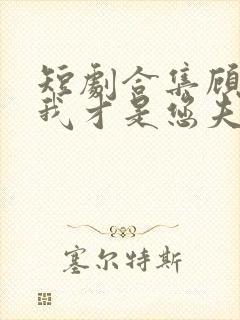 短劇合集顾
我才是您夫
塞尔特斯